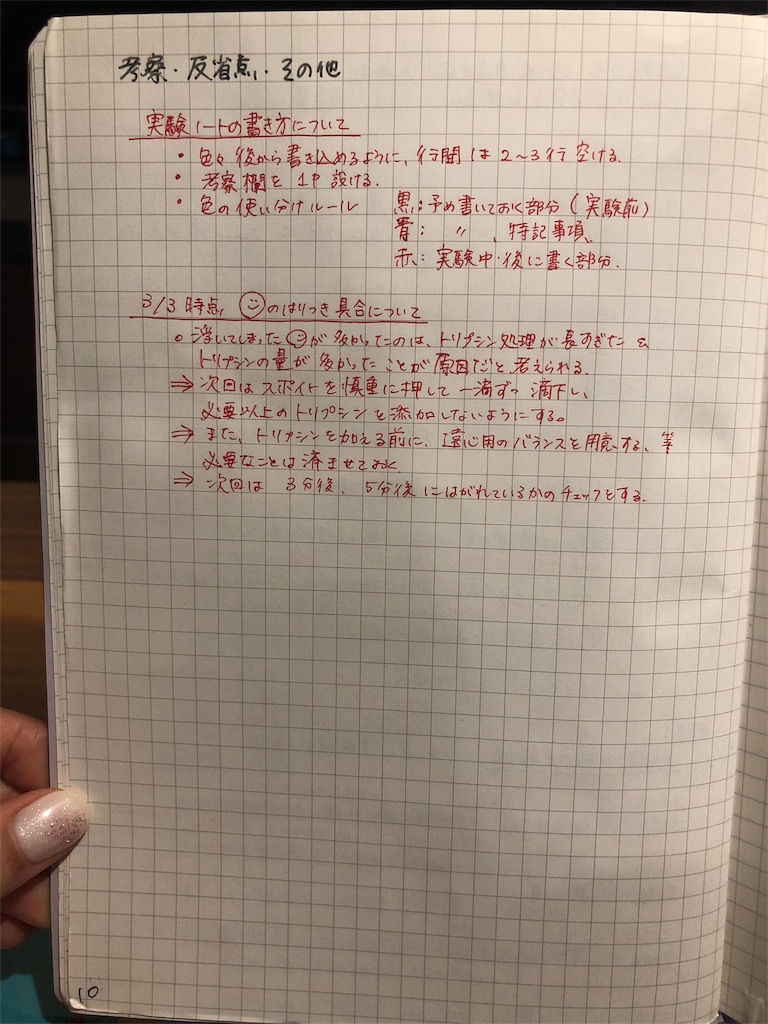 考察・反省点・その他
実験ノートの書き方について
・色々後から書き込めるように、行間は2〜3行空ける.
・考察欄を1P設ける.
・色の使い分けルール 黒:予め書いておく部分(実験前)
青: 〃 、特記事項、
赤: 実験中・後に書く部分.
3/3時点、☺のはりつき具合について
○浮いてしまった☺が多かったのは、トリプシン処理が長すぎた &
トリプシンの量が多かったことが原因だと考えられる.
⇒ 次回はスポイトを慎重に押して一滴ずつ滴下し、
必要以上のトリプシンを添加しないようにする。
⇒ また、トリプシンを加える前に、遠心用のバランスを用意する、等
必要なことは済ませておく
⇒ 次回は 3分後、5分後にはがれているかのチェックをする.
10